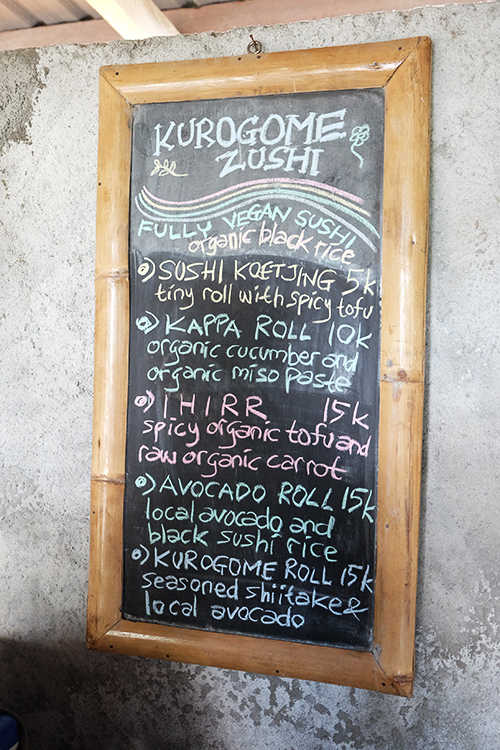 KUROGOME
ZUSHI
FULLY VEGAN SUSHI
organic black rice
SUSHI KOETJING 5k
tiny roll with spicy tofu
KAPPA ROLL 10k
organic cucumber and
organic miso paste
THIRR 15k
spicy organic tofu and
raw organic carrot
AVOCADO ROLL 15k
local avocado and
black sushi rice
KUROGOME ROLL 15k
seasoned shiitake &
local avocado